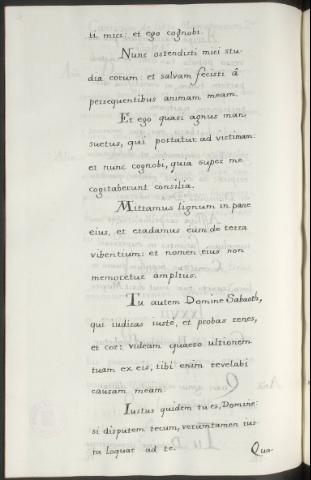 ti mici: et ego cognobi.
Nunc ostendisti mici stu-
dia eorum: et salvam fecisti â
persequentibus animam meam.
Et ego quasi agnus man-
suetus, qui portatur ad victimam:
et nunc cognobi, quia super me
cogitaberunt consilia.
Mittamus lignum in pane
eius, et eradamus eum de terra
vibentium: et nomen eius non
memoretur amplius.
Tu autem Domine Sabaoth,
qui iudicas iustè, et probas renes,
et cor: videam quaeso ultionem
tuam ex eis, tibi enim revelabi
causam meam.
Iustus quidem tu es, Domine:
si disputem tecum, verùmtamen ius-
ta loquar ad te.
Qua-